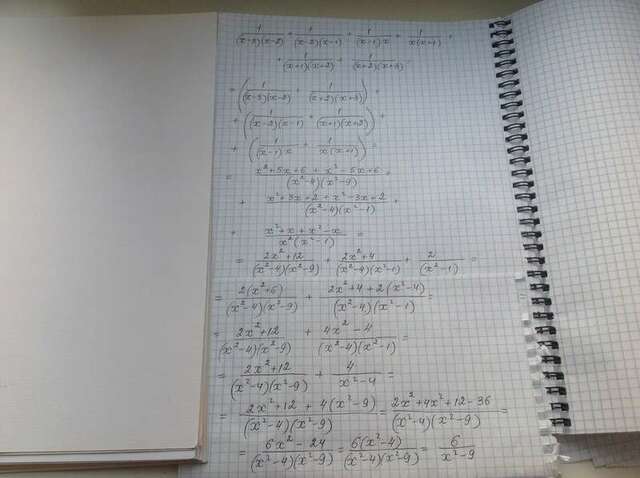 1/((x-3)(x-2)) + 1/((x-2)(x-1)) + 1/((x-1)x) + 1/(x(x+1)) +
+ 1/((x+1)(x+2)) + 1/((x+2)(x+3))
+ (1/((x-3)(x-2)) + 1/((x+2)(x+3))) +
+ (1/((x-2)(x-1)) + 1/((x+1)(x+2))) +
+ (1/((x-1)x) + 1/(x(x+1))) =
= (x²+5x+6+x²-5x+6)/((x²-4)(x²-9)) +
+ (x²+3x+2+x²-3x+2)/((x²-4)(x²-1)) +
+ (x²+x+x²-x)/(x²(x²-1)) =
= (2x²+12)/((x²-4)(x²-9)) + (2x²+4)/((x²-4)(x²-1)) + 2/(x²-1) =
= 2(x²+6)/((x²-4)(x²-9)) + (2x²+4+2(x²-4))/((x²-4)(x²-1)) =
= (2x²+12)/((x²-4)(x²-9)) + (4x²-4)/((x²-4)(x²-1)) =
= (2x²+12)/((x²-4)(x²-9)) + 4/(x²-4) =
= (2x²+12+4(x²-9))/((x²-4)(x²-9)) = (2x²+4x²+12-36)/((x²-4)(x²-9)) =
= (6x²-24)/((x²-4)(x²-9)) = 6(x²-4)/((x²-4)(x²-9)) = 6/(x²-9)